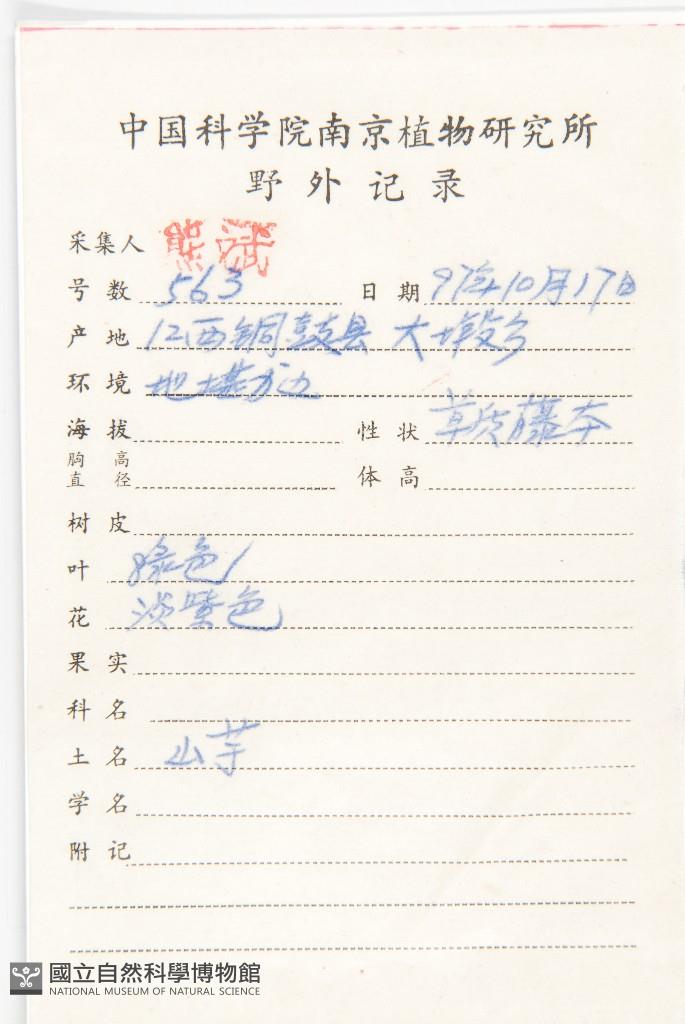 中国科学院南京植物研究所
野外记录
采集人 熊斌
号数 563 日期 97年10月17日
产地 江西铜鼓县 大塅乡
环境 地 边
海拔 性状 草质藤本
胸高直径 体高
树皮
叶 绿色
花 淡紫色
果实
科名
土名 山芋
学名
附记
國立自然科學博物館
NATIONAL MUSEUM OF NATURAL SCIENCE